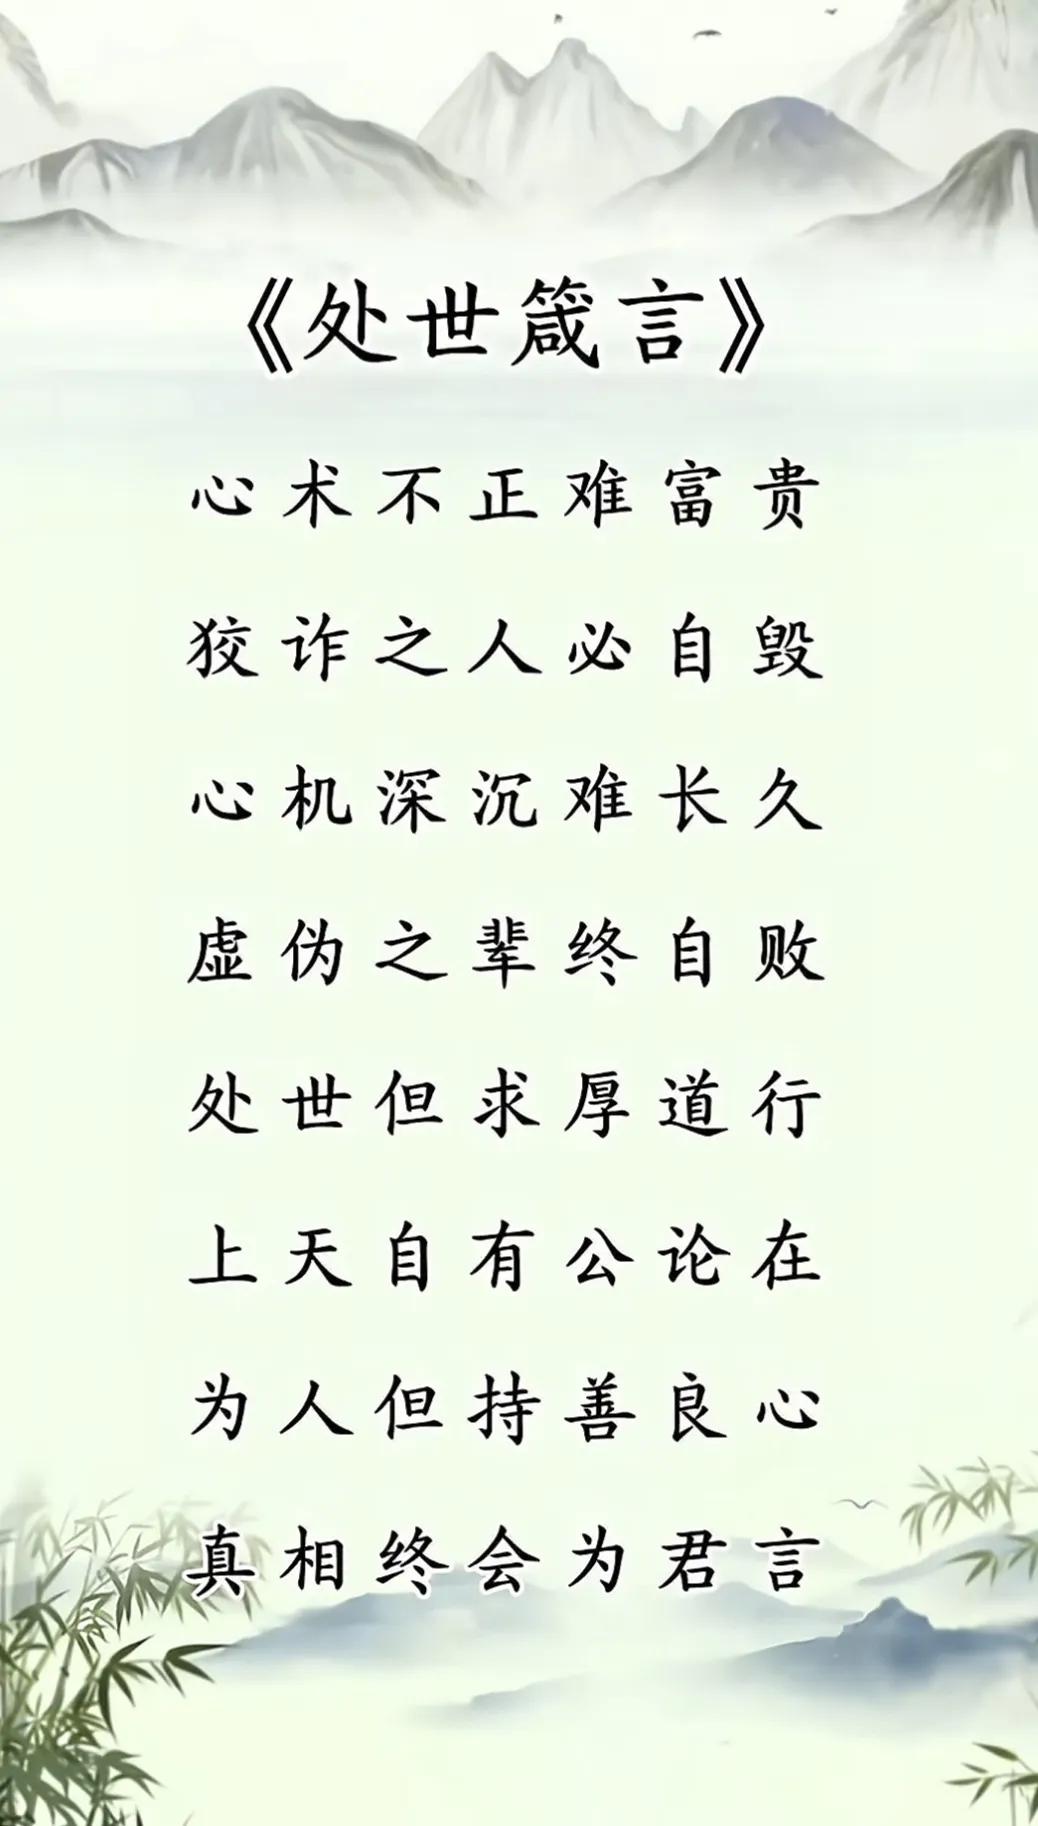 《处世箴言》
心术不正难富贵
狡诈之人必自毁
心机深沉难长久
虚伪之辈终自败
处世但求厚道行
上天自有公论在
为人但持善良心
真相终会为君言